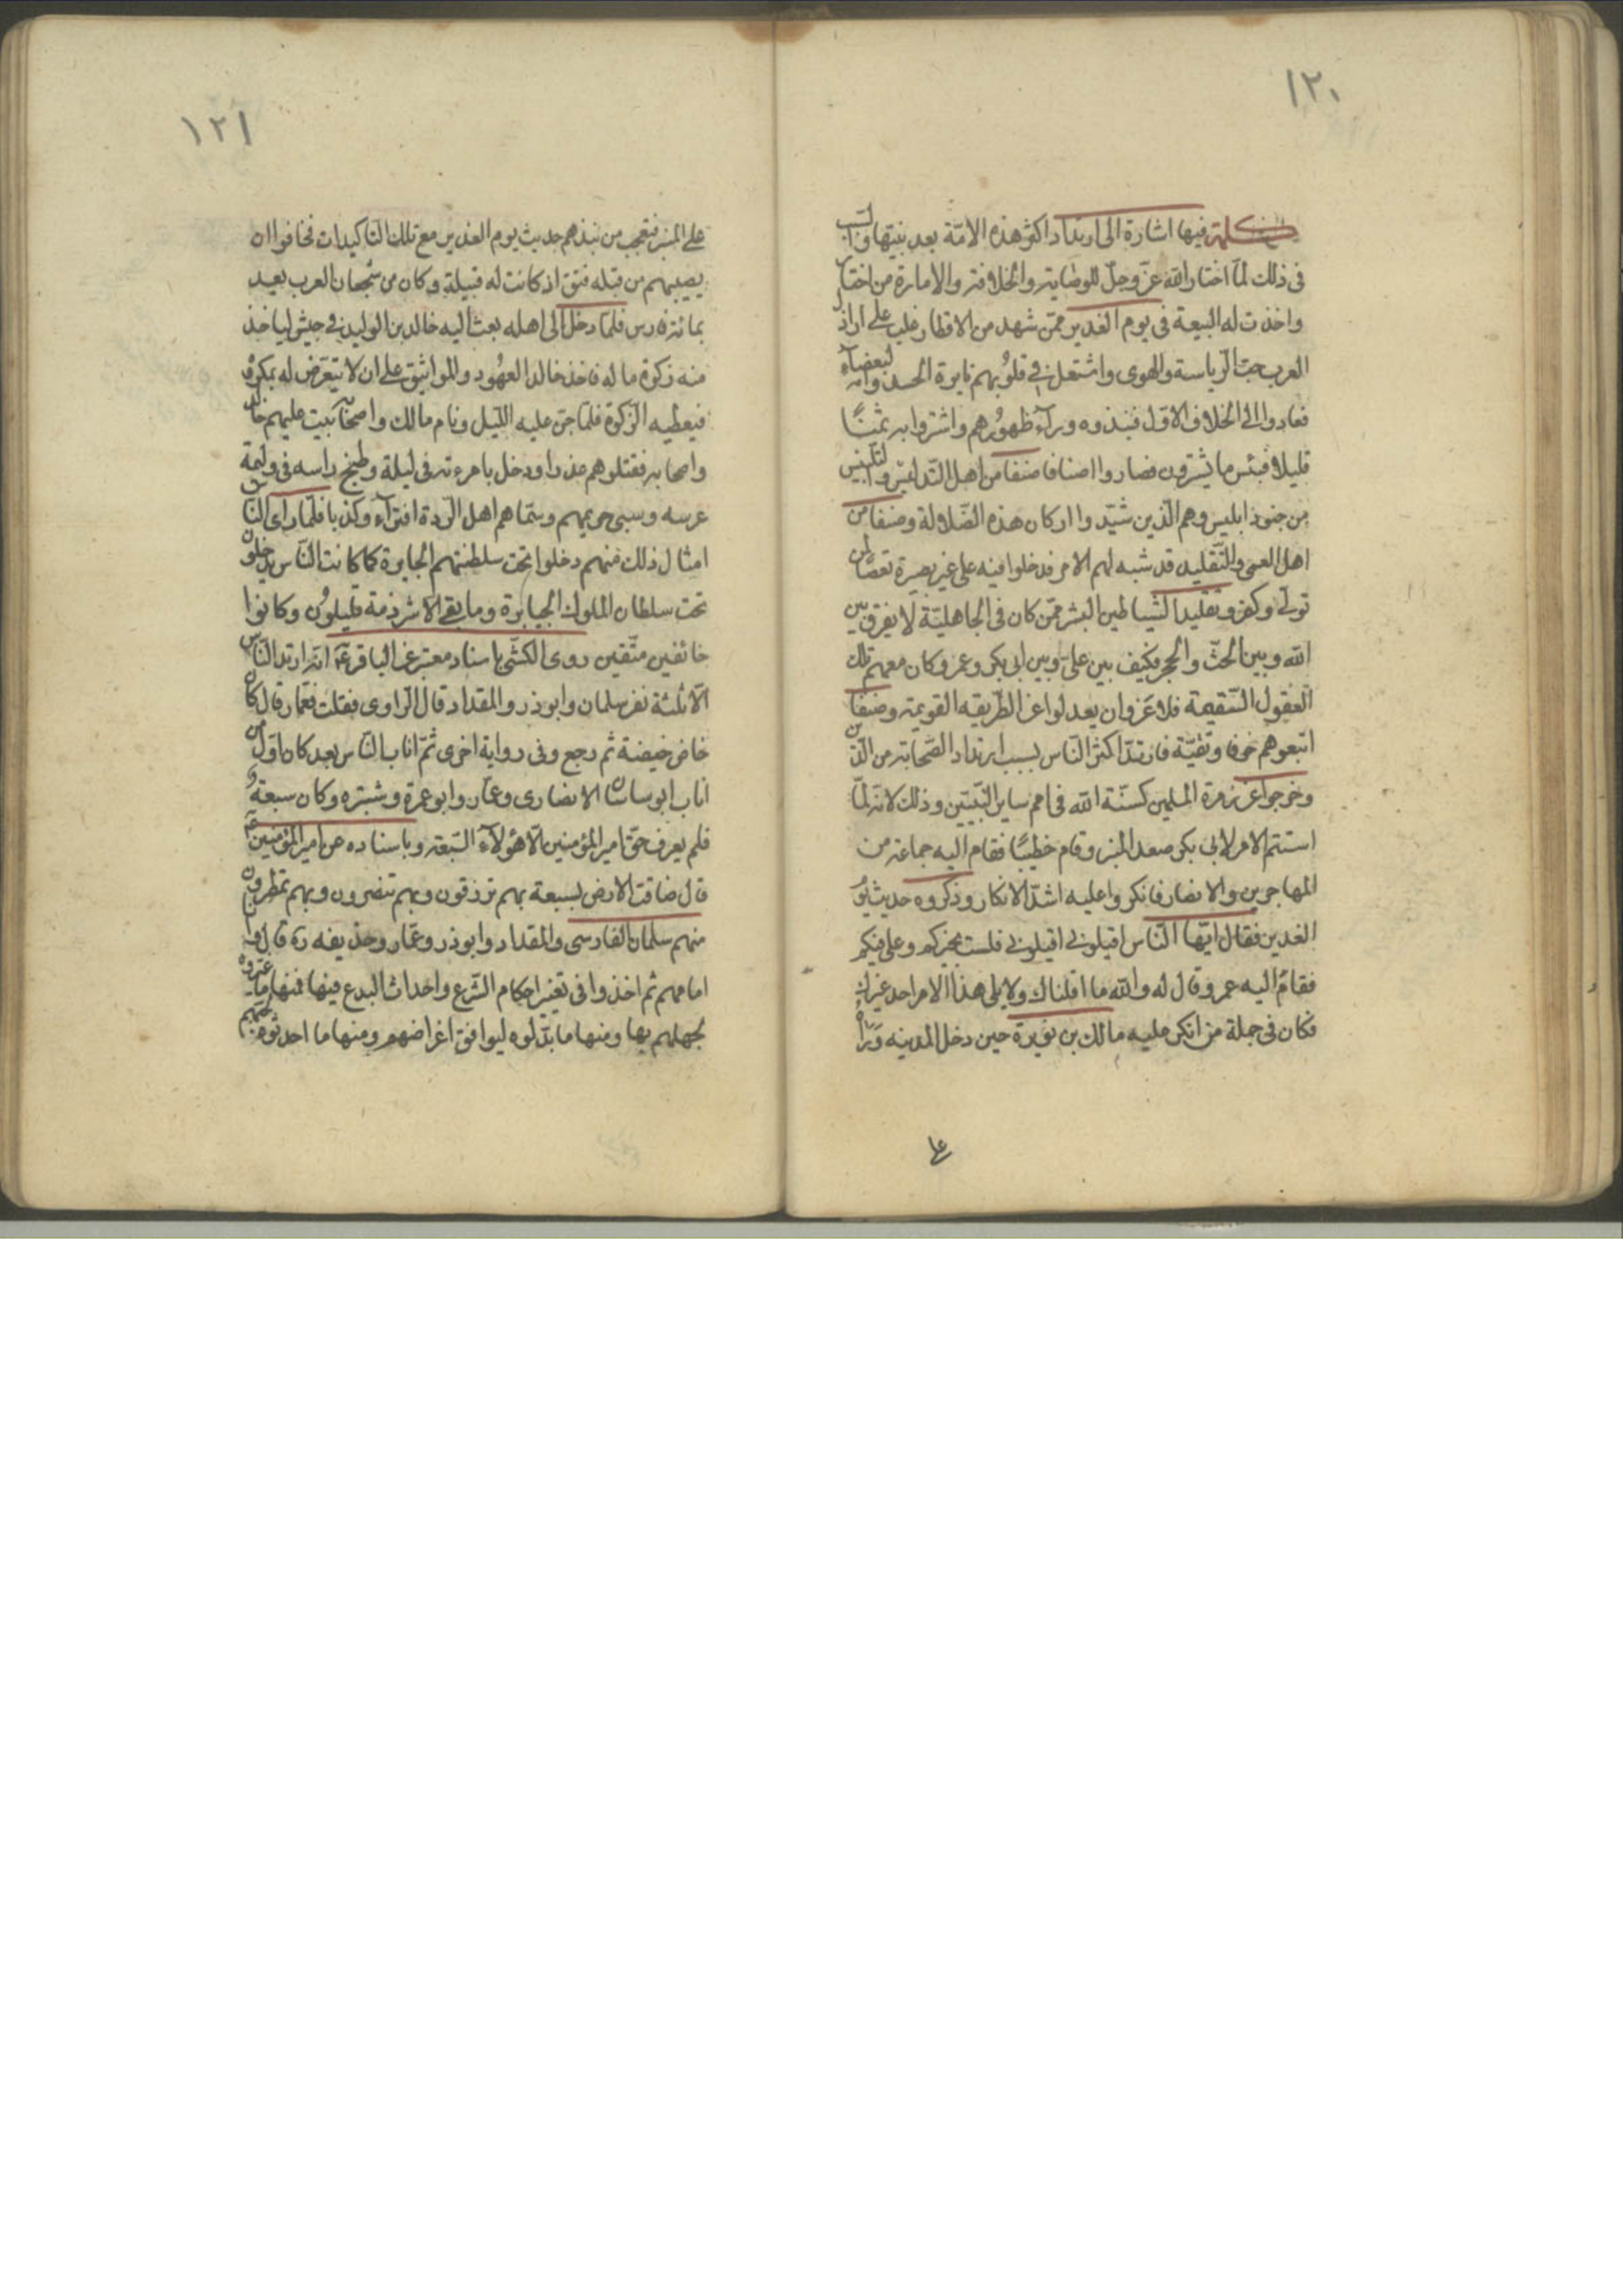 ١٢٠
كلمة فيها اشارة الى ارتداد اكثر هذه الامّة بعد نبيّها والسبب
فى ذلك لمّا اختار الله عزّ وجلّ للوصاية والخلافة والامارة من اختار
واخذت له البيعة فى يوم الغدير ممّن شهد من الاقطار غلب على اراذل
العرب حبّ الرّياسة والهوى واشتعل فى قلوبهم نايرة الحسد والبغضآء
فعادوا الى الخلاف الاوّل فنبذوه ورآء ظهورهم واشتروا به ثمنًا
قليلا فبئس ما يشترون فصاروا اصنافا صنفا من اهل التدليس والتلبيس
من جنود ابليس وهم الّذين شيّدوا اركان هذه الضّلالة وصنفا من
اهل العمى والتّقليد قد شبه لهم الامر فدخلوا فيه على غير بصيرة تعصّبا لمن
تولّى وكفر وتقليدا لشياطين البشر ممّن كان فى الجاهليّة لا يفرق بين
الله وبين الخشب والحجر فكيف بين علىّ وبين ابى بكر وعمر وكان معهم تلك
العقول السّقيمة فلا غرو ان يعدلوا عن الطريقه القويمة وصنفا
اتبعوهم خوفا وتقيّة فارتدّ اكثر النّاس بسبب ارتداد الصّحابة من الدّين
وخرجوا عن زمرة المسلمين كسنّة الله فى امم ساير النّبيّين وذلك لانّه لمّا
استتم الامر لابى بكر صعد المنبر وقام خطيبًا فقام اليه جماعة من
المهاجرين والانصار فانكروا عليه اشدّ الانكار وذكروه حديث يوم
الغدير فقال ايّها النّاس اقيلونى اقيلونى فلست بخيركم وعلى فيكم
فقام اليه عمر وقال له والله ما اقلناك ولا يلى هذا الامر احد غيرك
فكان فى جملة من انكر عليه مالك بن نويرة حين دخل المدينه ورآه
على
١٢١
على المنبر فتعجب من نبذهم حديث يوم الغدير مع تلك التاكيدات فخافوا ان
يصيبهم من قبله فتق اذ كانت له قبيلة وكان من شجعان العرب يعد
بمائة فارس فلمّا دخل الى اهله بعث اليه خالد بن الوليد فى جيش لياخذ
منه زكوة ماله فاخذ خالد العهود والمواثيق على ان لا يتعرّض له بمكروه
فيعطيه الزكوة فلمّا جنّ عليه اللّيل ونام مالك واصحابه بيت عليهم خالد
واصحابه فقتلوهم غدرا ودخل بامرءته فى ليلة وطبخ راسه فى وليمة
عرسه وسبى حريمهم وسمّاهم اهل الردة افترآء وكذبا فلمّا راى النّاس
امثال ذلك منهم دخلوا تحت سلطنتهم الجابرة كما كانت النّاس يدخلون
تحت سلطان الملوك الجبابرة وما بقى الا شرذمة قليلون وكانوا
خائفين متّقين روى الكشّى باسناد معتبر عن الباقر عم انّه ارتد النّاس
الّا ثلثة نفر سلمان وابوذر والمقداد قال الرّاوى فقلت فعمار قال كان
خاض خيضة ثم رجع وفى رواية اخرى ثمّ اناب النّاس بعد كان اوّل من
اناب ابو ساسان الانصارى وعمّار وابو عمرة وشتيره وكان سبعة و
فلم يعرف حقّ امير المؤمنين الّا هؤلآء السّبعة وباسناده عن امير المؤمنين عم
قال ضاقت الارض بسبعة بهم ترزقون وبهم تنصرون وبهم تمطرون
منهم سلمان الفارسى والمقداد وابوذر وعمّار وحذيفه ره قال وانا
امامهم ثم اخذوا فى تغيير احكام الشّرع واحداث البدع فيها فمنها ما غيّروه
لجهلهم بها ومنها ما بدّلوه ليوافق اغراضهم ومنها ما احدثوه